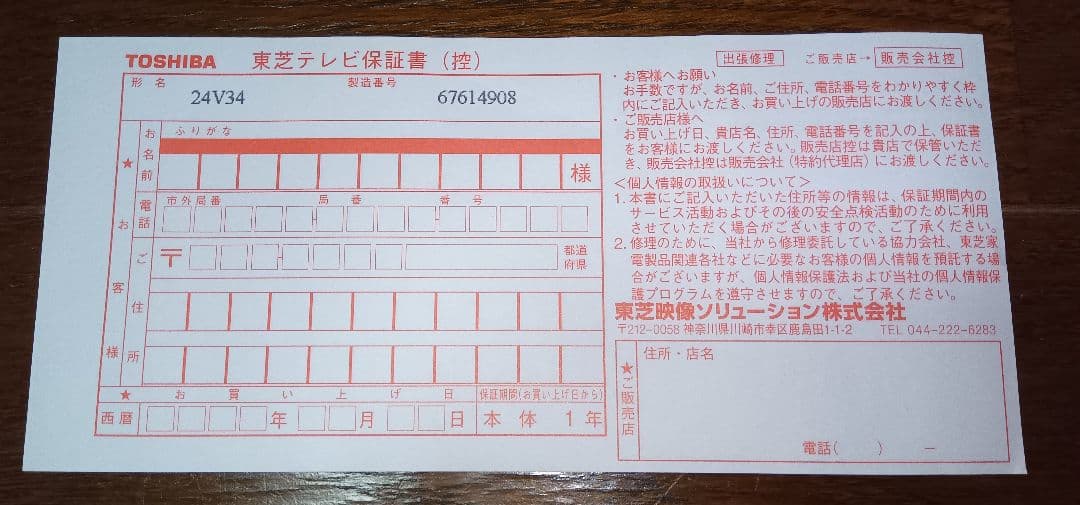 TOSHIBA 東芝テレビ保証書（控）
出張修理 ご販売店→ 販売会社控
形名 製造番号
24V34 67614908
ふりがな
★お客様
お名前
様
電話
市外局番 局番 番号
ご住所
〒 都道府県
★ お買い上げ日 保証期間(お買い上げ日から)
西暦 年 月 日 本体 1年
・お客様へお願い
お手数ですが、お名前、ご住所、電話番号をわかりやすく枠
内にご記入いただき、お買い上げの販売店にお渡しください。
・ご販売店様へ
お買い上げ日、貴店名、住所、電話番号を記入の上、保証書
をお客様にお渡しください。販売店控は貴店で保管いただ
き、販売会社控は販売会社（特約代理店）にお渡しください。
＜個人情報の取扱いについて＞
1. 本書にご記入いただいた住所等の情報は、保証期間内の
サービス活動およびその後の安全点検活動のために利用
させていただく場合がございますので、ご了承ください。
2. 修理のために、当社から修理委託している協力会社、東芝家
電製品関連各社などに必要なお客様の個人情報を預託する場
合がございますが、個人情報保護法および当社の個人情報保
護プログラムを遵守させますので、ご了承ください。
東芝映像ソリューション株式会社
〒212-0058 神奈川県川崎市幸区鹿島田1-1-2 TEL 044-222-6283
★ご販売店
住所・店名
電話( ) －